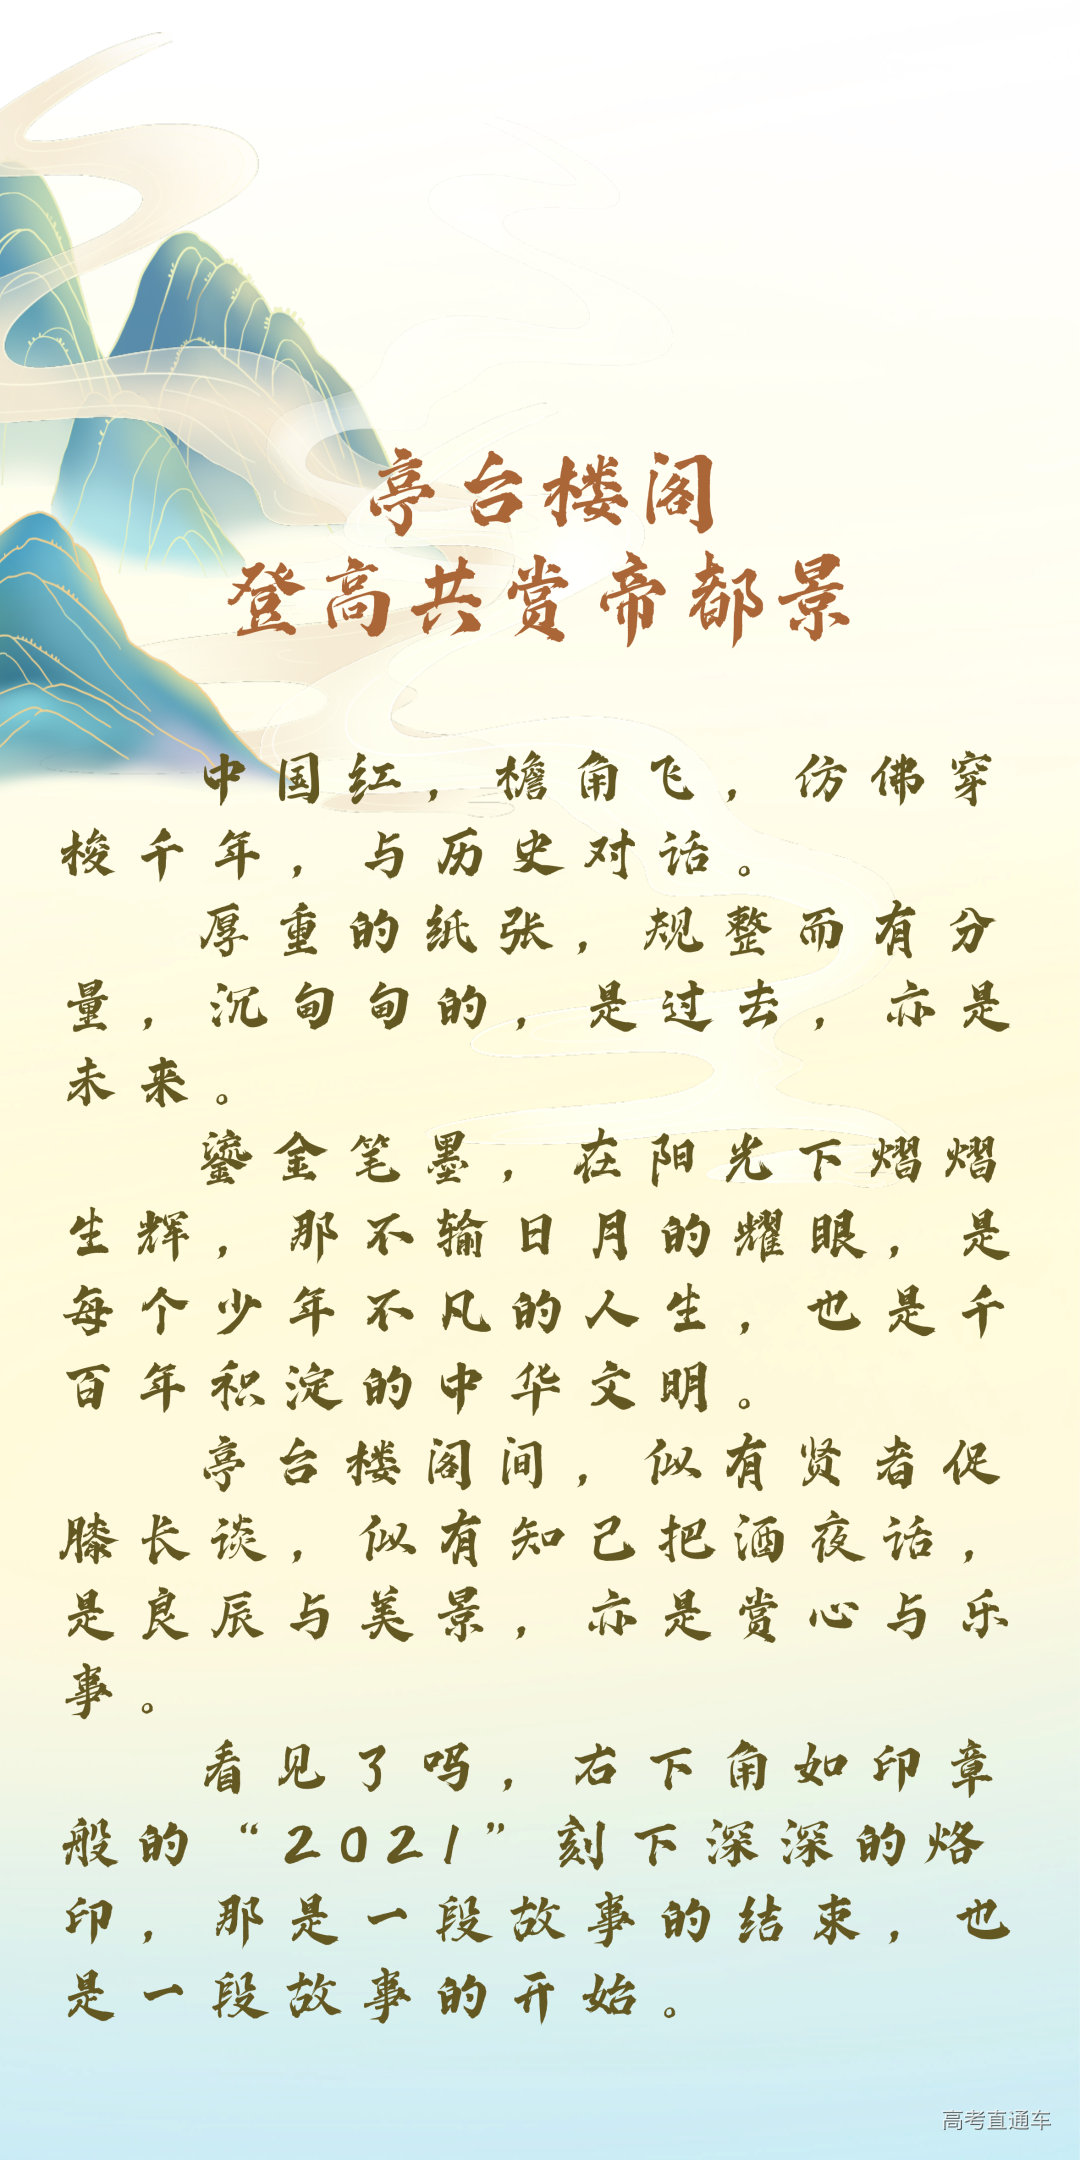 亭台楼阁
登高共赏帝都景
中国红，檐角飞，仿佛穿
梭千年，与历史对话。
厚重的纸张，规整而有分
量，沉甸甸的，是过去，亦是
未来。
鎏金笔墨，在阳光下熠熠
生辉，那不输日月的耀眼，是
每个少年不凡的人生，也是千
百年积淀的中华文明。
亭台楼阁间，似有贤者促
膝长谈，似有知己把酒夜话，
是良辰与美景，亦是赏心与乐
事。
看见了吗，右下角如印章
般的“2021”刻下深深的烙
印，那是一段故事的结束，也
是一段故事的开始。
高考直通车